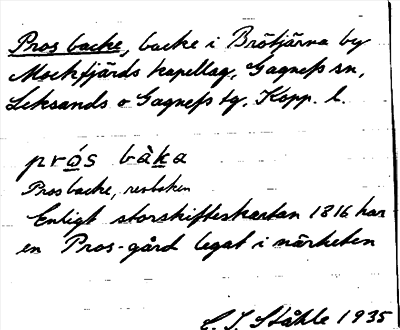 Pros backe, backe i Brötjärna by
Mockfjärds kapellag, Gagnefs sn,
Leksands o Gagnefs tg, Kopp. l.
prós bàka
Pros backe, revbeken
Enligt storskifteskartan 1816 har
en Pros-gård legat i närheten
C. I. Ståhle 1935